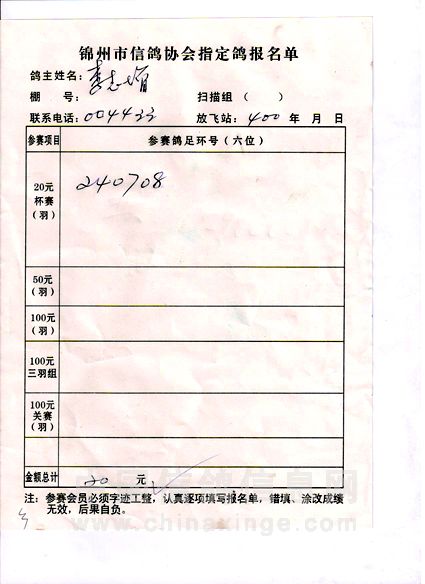 锦州市信鸽协会指定鸽报名单
鸽主姓名：李志
棚 号：　扫描组（ ）
联系电话：004433　放飞站：400 年 月 日
参赛项目　参赛鸽足环号（六位）
20元
杯赛
（羽）
240708
50元
（羽）
100元
（羽）
100元
三羽组
100元
关赛
（羽）
金额总计　20 元
注：参赛会员必须字迹工整，认真逐项填写报名单，错填、涂改成绩
无效，后果自负。
中国信鸽信息网
www.chinaxinge.com